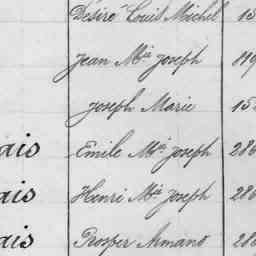 Désiré Louis Michel 15
Jean Mie Joseph
Joseph Marie 15
ais Emile Mie Joseph 286
ais Henri Mie Joseph 286
ais Prosper Armand 286